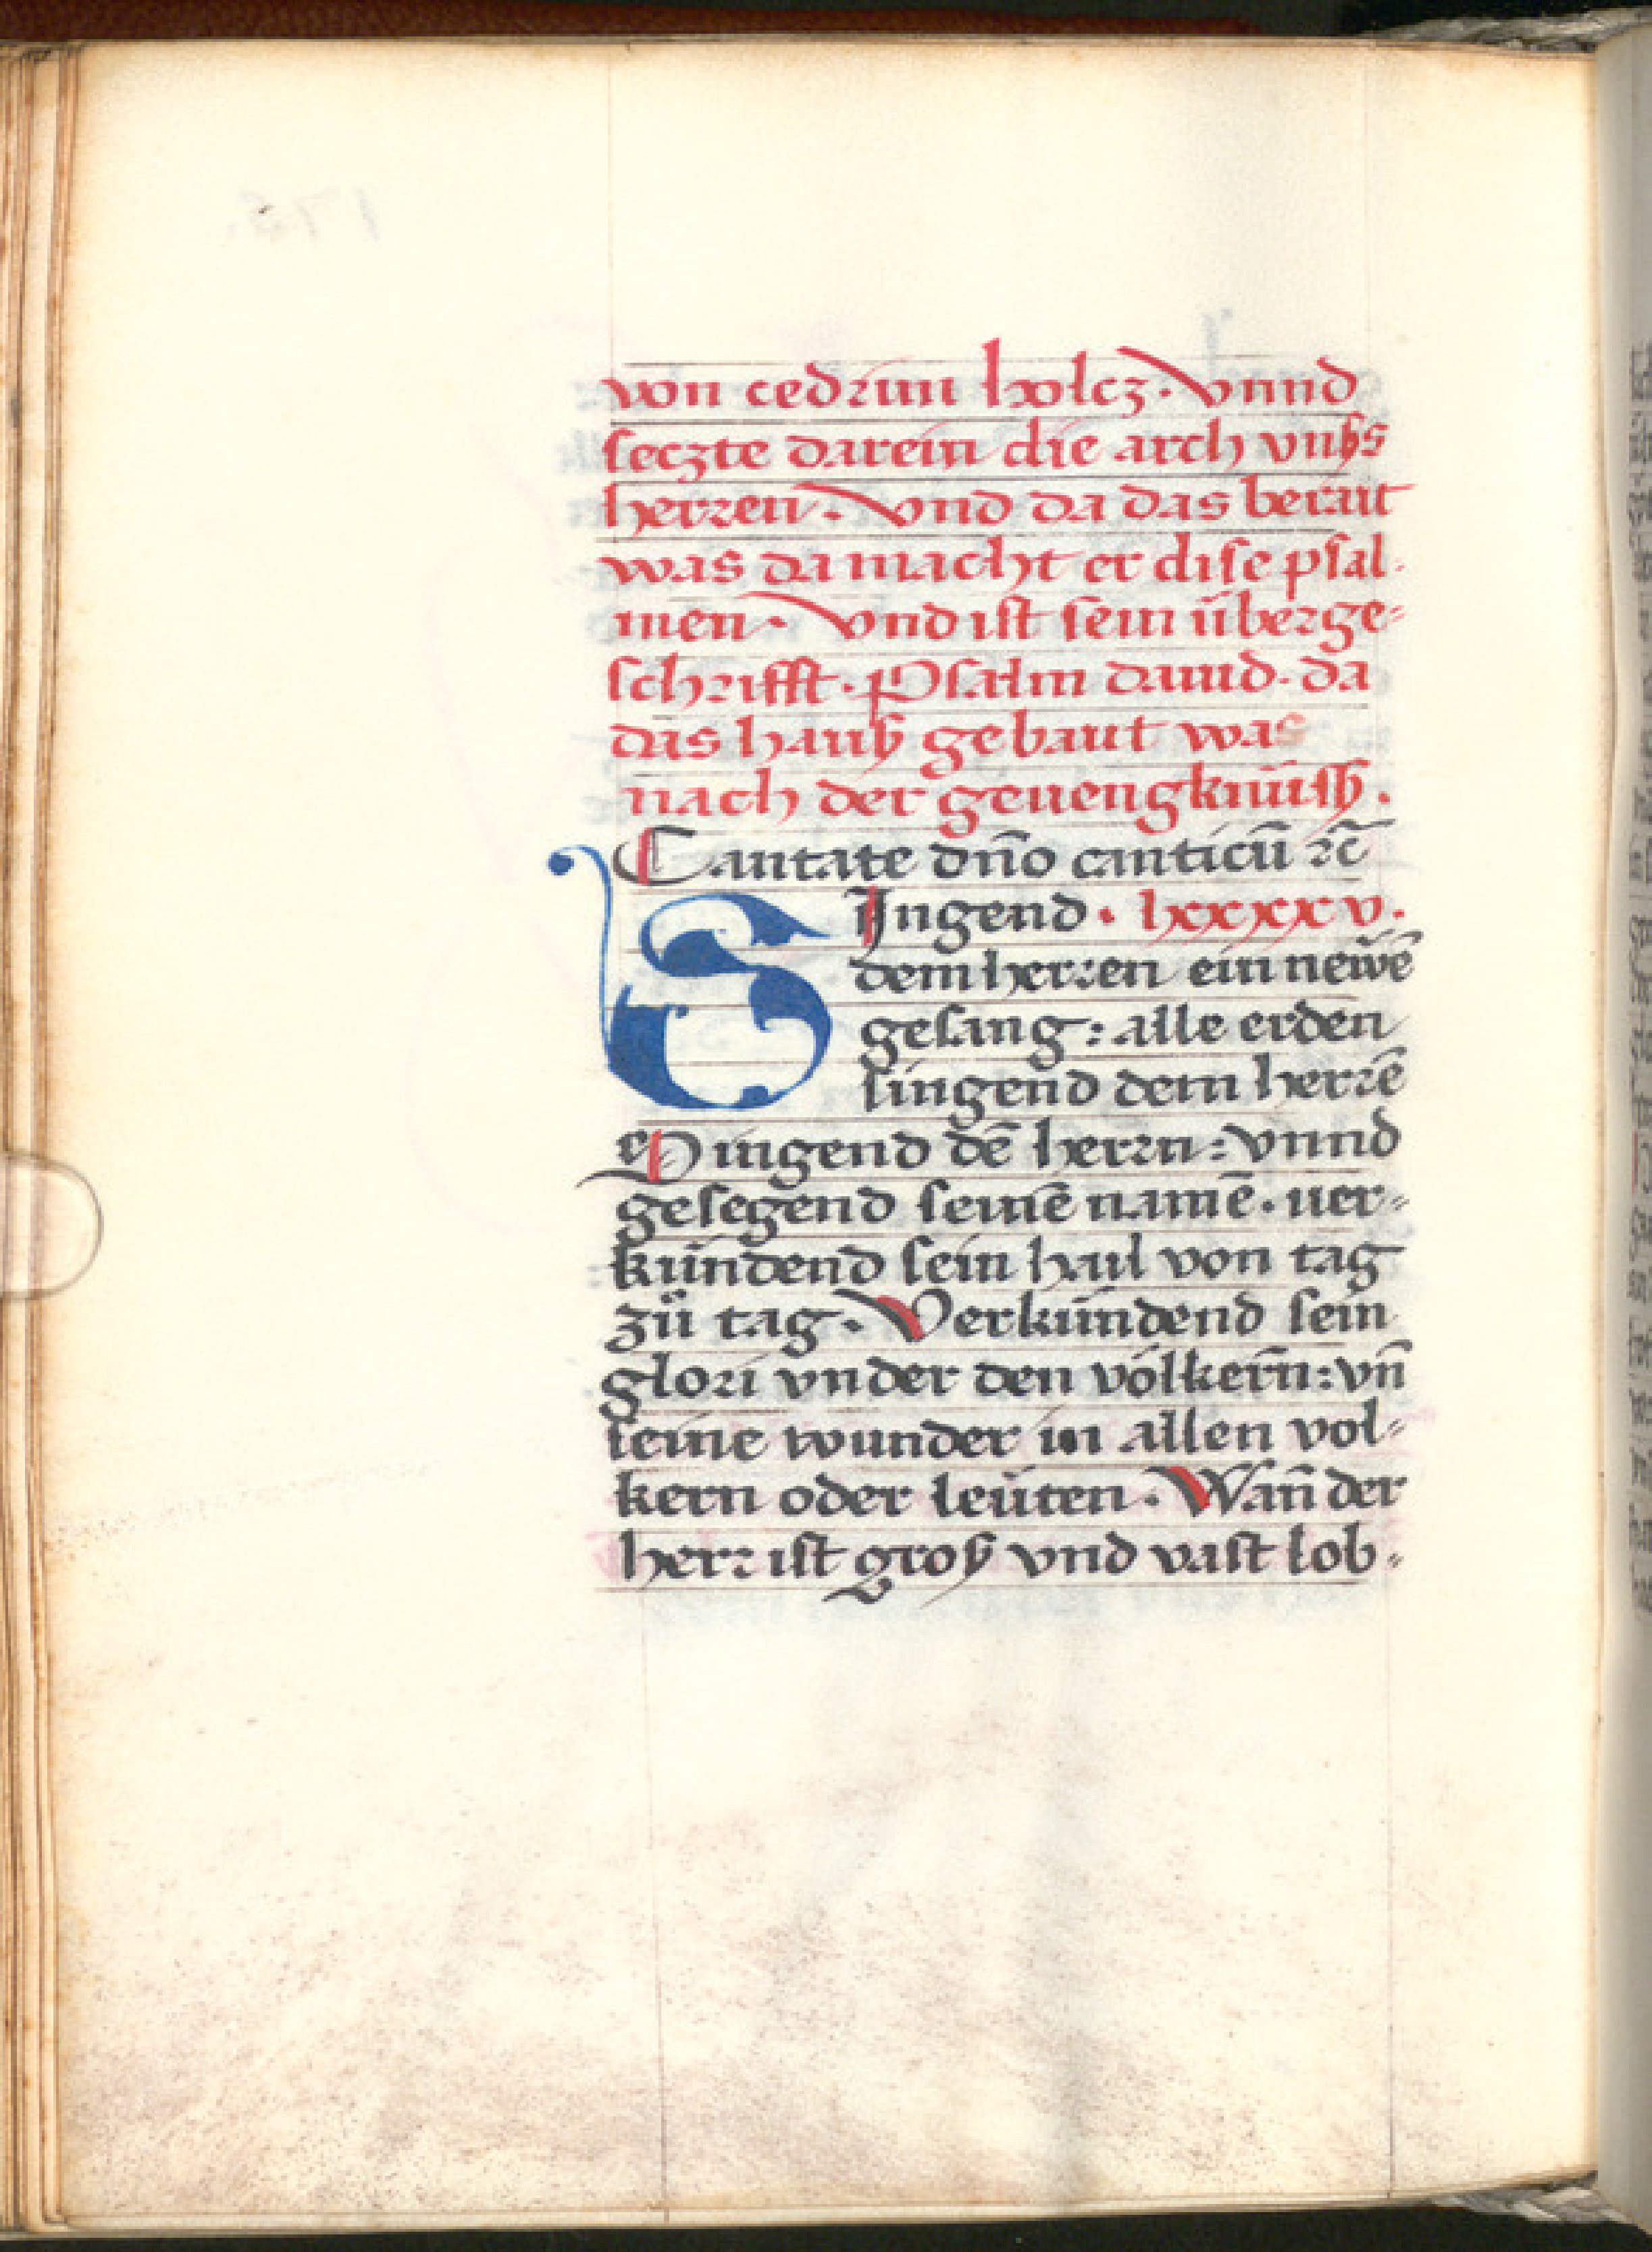 von cedrim holcz · Vnnd
seczte darein die arch vnßs
herren · Vnd da das berait
was da macht er dise psal-
men · Vnd ist sein überge-
schrifft · Psalm dauid · da
das hauß gebaut was
nach der geuengknüß .
Cantate dn̄o canticū ꝛc̄
SIngend · lxxxxv .
dem herren ein newē
gesang : alle erden
singend dem herrē
Singend dē herrn : vnnd
gesegend seinē namē · uer-
kündend sein hail von tag
zü tag · Verkündend sein
glori vnder den völkern : vn̄
seine wunder in allen vol-
kern oder leüten · Wan̄ der
herr ist groß vnd vast lob-